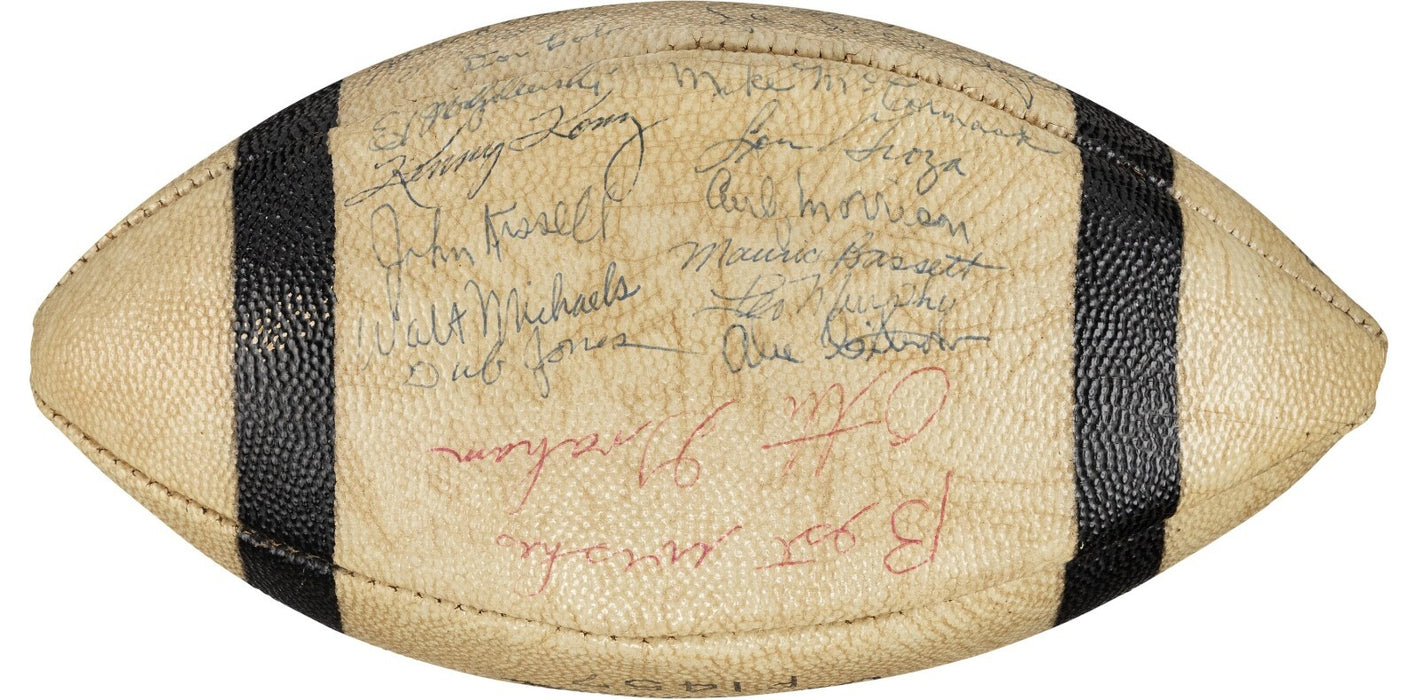 Don Colo
Ed Modzelewski
Kenny Konz
John Kissell
Walt Michaels
Dub Jones
Mike McCormack
Lou Groza
Curl Morrison
Maurice Bassett
Leo Murphy
Abe Gibron
Best wishes
Otto Graham